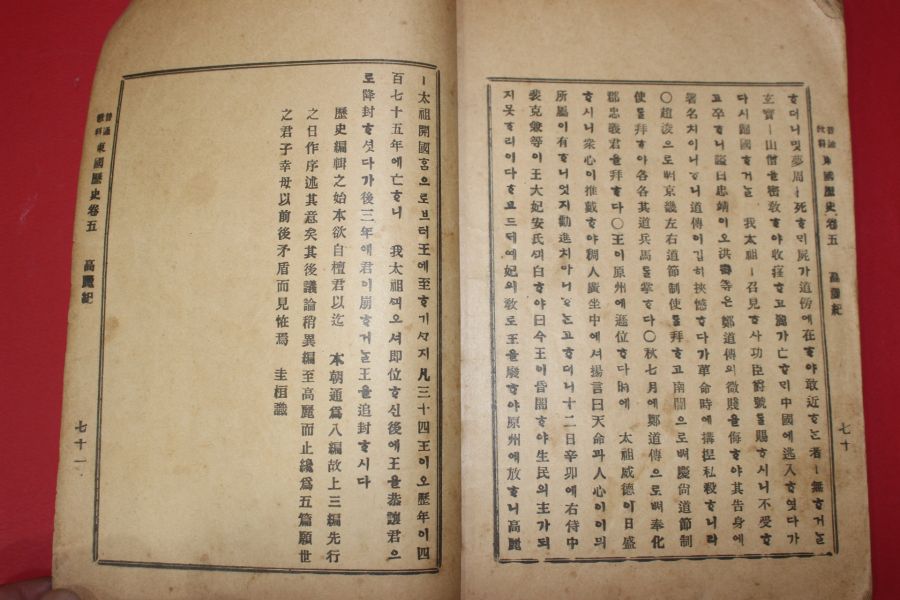 普通敎科 東國歷史卷五 高麗紀 七十
ᄒᆞ더니및夢周ㅣ死ᄒᆞᄆᆡ屍가道傍에在ᄒᆞ야敢近ᄒᆞᄂᆞᆫ者ㅣ無ᄒᆞ거ᄂᆞᆯ
玄寶ㅣ山僧을密敎ᄒᆞ야收瘞ᄒᆞ고麗가亡ᄒᆞᄆᆡ中國에逃入ᄒᆞ엿다가
다시歸國ᄒᆞ거ᄂᆞᆯ 我太祖ㅣ召見ᄒᆞ샤功臣爵號ᄅᆞᆯ賜ᄒᆞ시니不受ᄒᆞ
고卒ᄒᆞ니諡曰忠靖이오洪壽等은鄭道傳의微賤을侮ᄒᆞ야其告身에
署名치아니ᄒᆞ니道傳이깁히挾憾ᄒᆞ다가革命時에搆捏私殺ᄒᆞ니라
○趙浚으로ᄡᅥ京畿左右道節制使ᄅᆞᆯ拜ᄒᆞ고南誾으로ᄡᅥ慶尙道節制
使ᄅᆞᆯ拜ᄒᆞ야各各其道兵馬ᄅᆞᆯ掌ᄒᆞ다○秋七月에鄭道傳으로ᄡᅥ奉化
郡忠義君을拜ᄒᆞ다○王이原州에遜位ᄒᆞ다時에 太祖威德이日盛
ᄒᆞ시니衆心이推戴ᄒᆞ야稠人廣坐中에셔揚言曰天命과人心이이믜
所屬이有ᄒᆞ니엇지勸進치아니ᄒᆞᄂᆞᆫ고ᄒᆞ더니十二日辛卯에右侍中
裵克廉等이王大妃安氏ᄭᅴ白ᄒᆞ야曰今王이昏闇ᄒᆞ야生民의主가되
지못ᄒᆞ리이다ᄒᆞ고드ᄃᆡ여妃의敎로王을廢ᄒᆞ야原州에放ᄒᆞ니高麗
ㅣ太祖開國홈으로브터王에至ᄒᆞ기ᄭᆞ지凡三十四王이오歷年이四
百七十五年에亡ᄒᆞ니 我太祖ᄭᅴ오셔即位ᄒᆞ신後에王을恭讓君으
로降封ᄒᆞ셧다가後三年에君이崩ᄒᆞ거ᄂᆞᆯ王을追封ᄒᆞ시다
歷史編輯之始本欲自檀君以迄 本朝通爲八編故上三編先行
之日作序述其意矣其後議論稍異編至高麗而止纔爲五篇願世
之君子幸毋以前後矛盾而見恠焉 圭桓識
普通敎科 東國歷史卷五 高麗紀 七十一